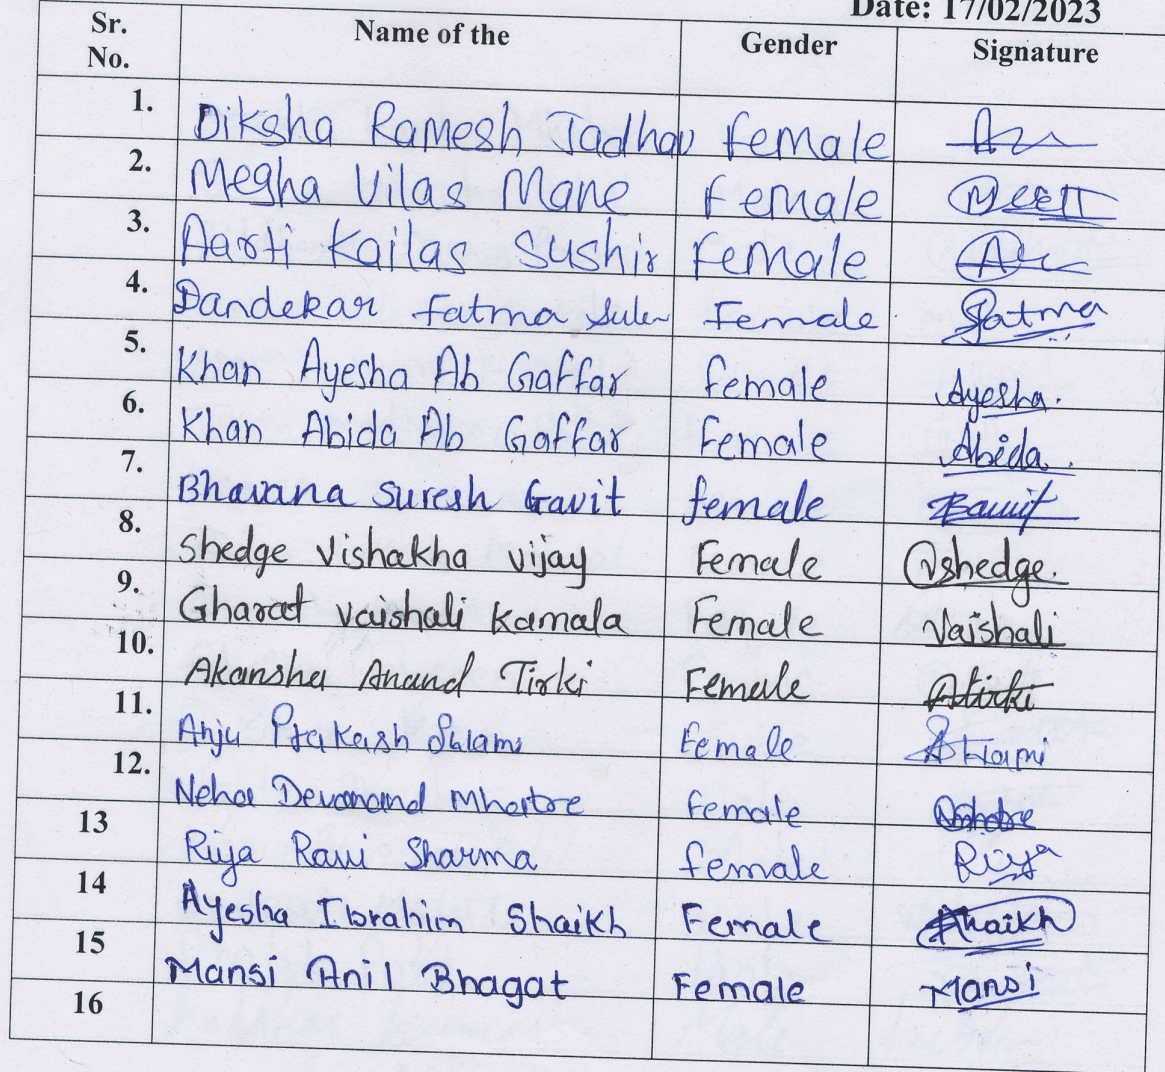 Date: 17/02/2023
Sr. No. Name of the Gender Signature
1. Diksha Ramesh Jadhav female
2. Megha Vilas Mane Female
3. Aarti Kailas Sushir Female
4. Dandekar Fatma Sulen Female Fatma
5. Khan Ayesha Ab Gaffar female Ayesha.
6. Khan Abida Ab Gaffar Female Abida.
7. Bhavana Suresh Gavit female
8. Shedge Vishakha vijay Female Vshedge.
9. Gharat Vaishali Kamala Female Vaishali
10. Akansha Anand Tirki Female Atirki
11. Anju Prakash Female
12. Neha Devanand Mhatre Female
13 Riya Ravi Sharma female Riya
14 Ayesha Ibrahim Shaikh Female Shaikh
15 Mansi Anil Bhagat Female Mansi
16